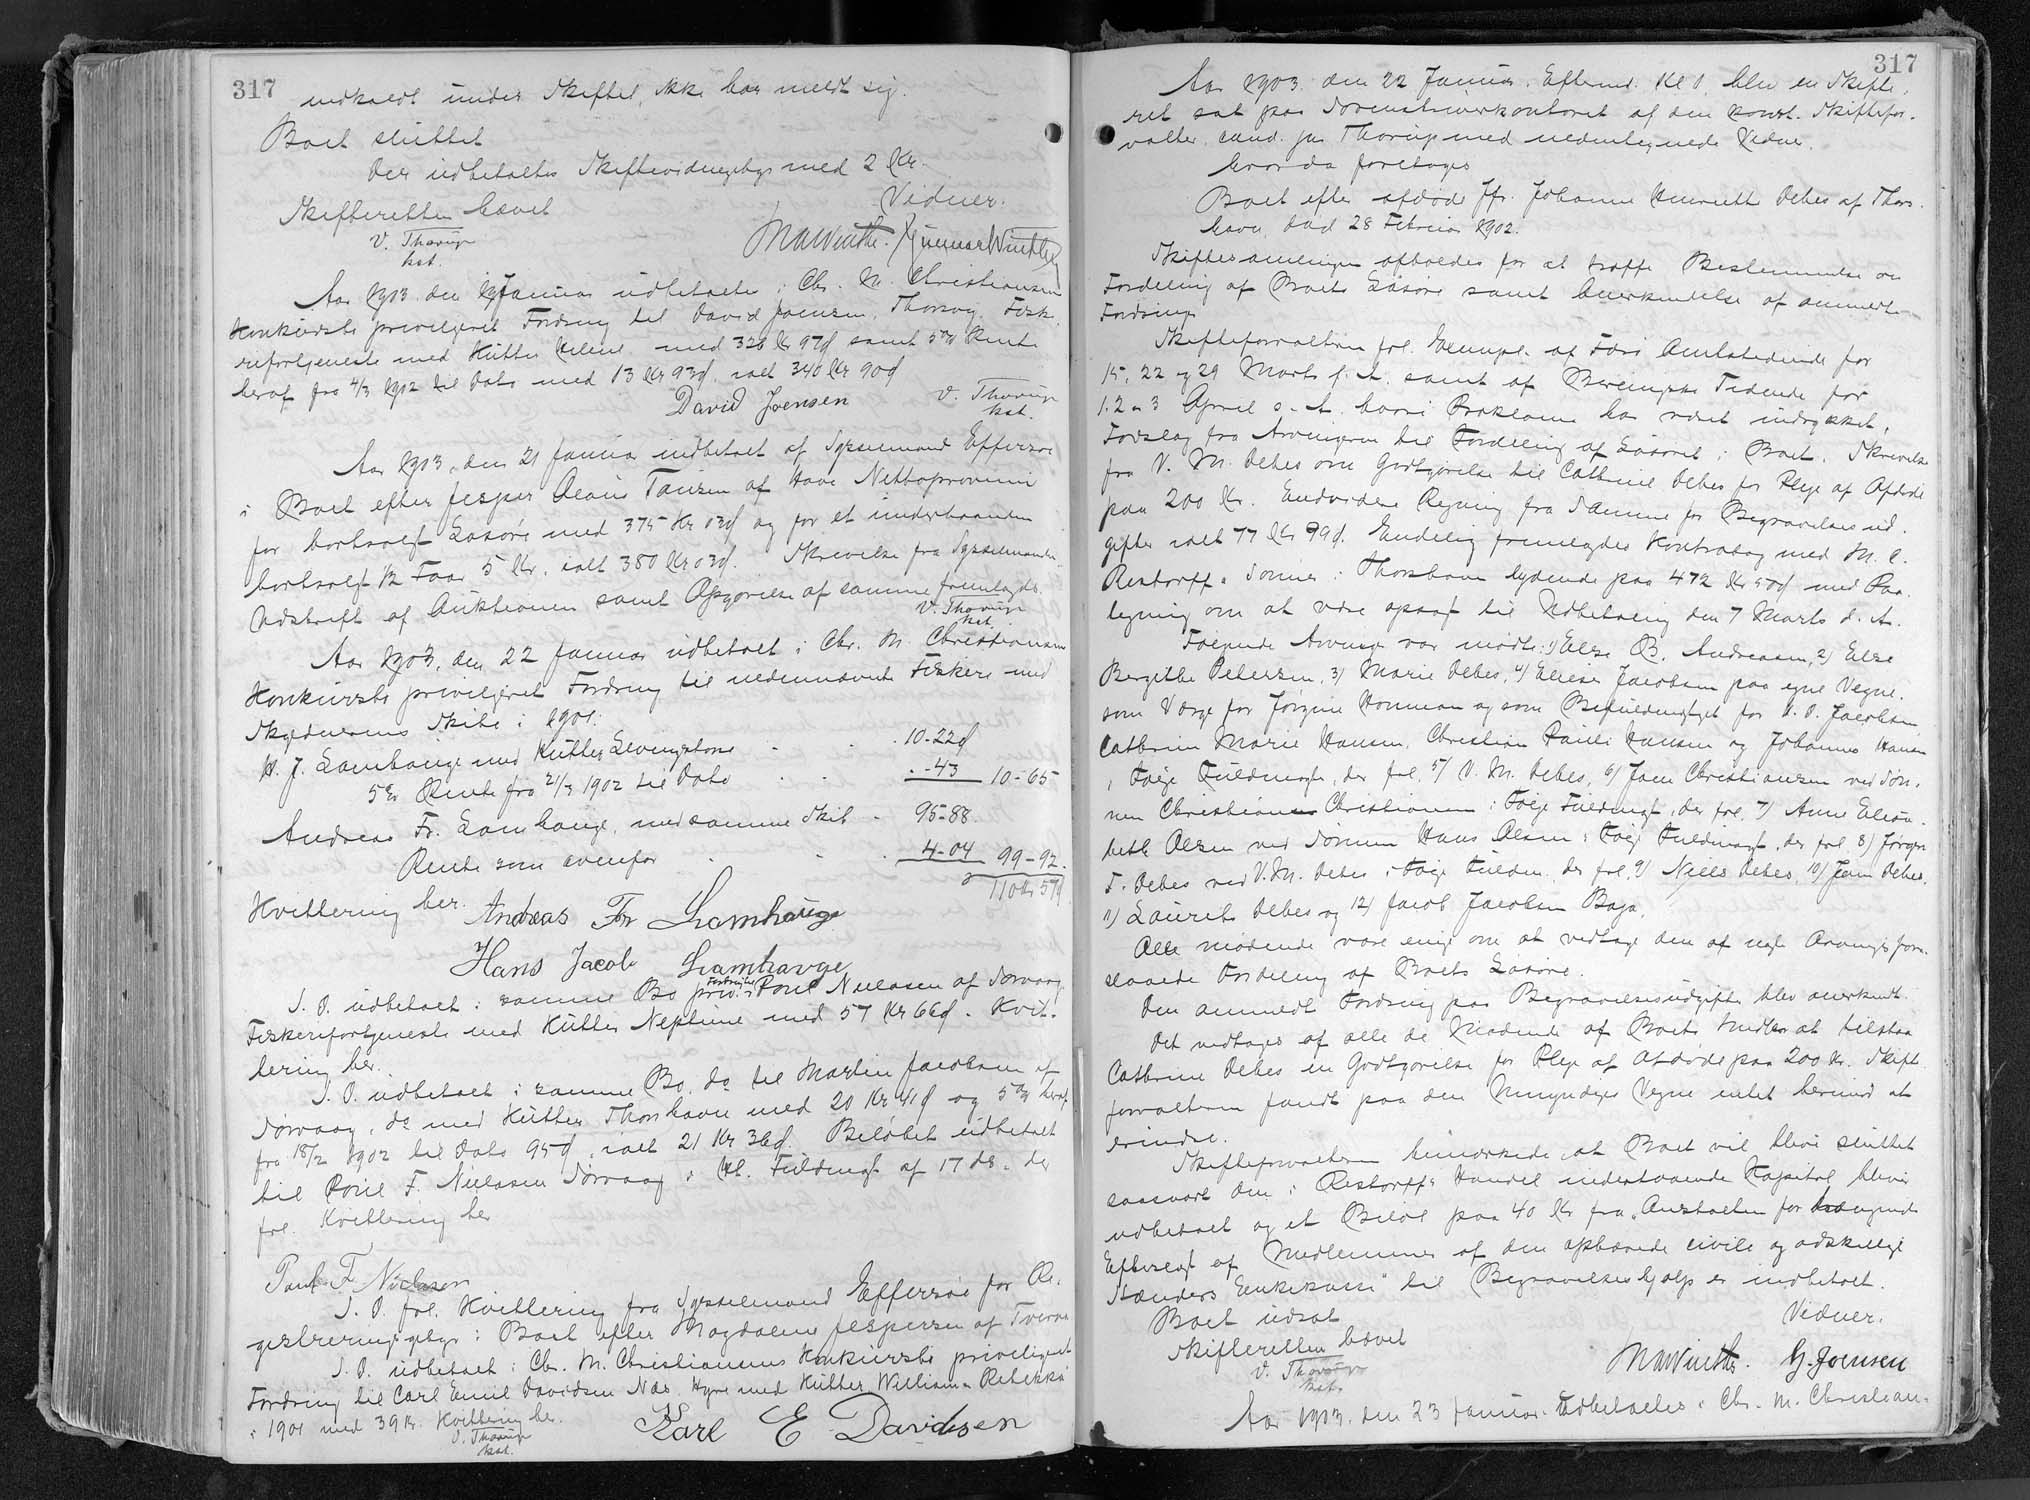 317
indkaldt under Skiftet, ikke har meldt sig.
Boet sluttet
Der udbetaltes Skiftevidnegebyr med 2 Kr.
Skifteretten hævet
Vidner.
V. Thorup
kst.
MAWinther. Gunnar Winther
Aar 1903 den Januar udbetaltes i Chr. M. Christiansens
Konkursbo privilgeret Fordring til David Joensen, Thorsvig. Fisk
erifortjeneste med Kutter Helene med 326 Kr 97 d samt 5% Rente
heraf fra 4/3 1902 til Dato med 13 Kr 93 d. ialt 340 Kr 90 d
David Joensen
V. Thorup
kst.
Aar 1903, den 21 Januar indbetalt af Sysselmand Effersøe
i Boet efter Jesper Tausen af Nettoprovenu
for bortsolgt Løsøre med 375 Kr 03 d og for et underhaanden
bortsolgt 1/2 Faar 5 Kr. ialt 380 Kr 03 d. Skrivelse fra Sysselmanden
Udskrift af Auktionen samt Opgørelse af samme fremlagdes.
V. Thorup
kst.
Aar 1903, den 22 Januar udbetalt i Chr. M. Christiansens
Konkursbo privilgeret Fordring til nedennævnte Fiskere med
Skyldnerens Skibe i 1901.
H. J. Lamhauge med Kutter Livingstone - - 10-22 d
5% Rente fra 21/3 1902 til Dato - - -43 10-65
Andreas Fr. Lamhauge, med samme Skib - 95-88
Rente som ovenfor - - - 4-04 99-92
110 Kr 57 d
Kvittering her.
Andreas Fr Lamhauge
Hans Jacob Lamhauge
S. D. udbetalt i samme Bo priv. Fordring til Poul Nielsen af Sørvaag
Fiskerifortjeneste med Kutter Neptune med 57 Kr 66 d. Kvit-
tering her.
S. D. udbetalt i samme Bo. do til Martin Jacobsen af
Sørvaag, do med Kutter Thorshavn med 20 Kr 41 d og 5% heraf
fra 18/2 1902 til Dato 95 d, ialt 21 Kr 36 d. Beløbet udbetalt
til Poul F. Nielsen Sørvaag i Hl. Fuldmagt af 17 ds. der
frl. Kvittering her
Poul F. Nielsen
S. D. frl. Kvittering fra Sysselmand Effersøe for Re-
gistreringsgebyr i Boet efter Magdalene Jespersen af Tveraa
S. D. udbetalt i Chr. M. Christiansens Konkursbo priviligeret
Fordring til Carl Emil Davidsen Næs. Hyre med Kutter William & Rebekka
i 1901 med 39 Kr. Kvittering her.
V. Thorup
kst.
Karl E Davidsen
317
Aar 1903 den 22 Januar. Efterm. Kl 1, blev en Skifte-
ret sat paa Sorenskriverkontoret af den konst. Skiftefor-
valter, cand. jur Thorup med undertegnede Vidner.
hvor da foretoges
Boet efter afdøde Jfr. Johanne Henriette Debes af Thors-
havn, død 28 Februar 1902.
Skiftesamlingen afholdes for at træffe Bestemmelse om
Fordeling af Boets Løsøre samt Anerkendelse af anmeldte
Fordringer
Skifteforvalteren frl. Exempl. af Færø Amtstidende for
15, 22 og 29 Marts f. A. samt af Berlingske Tidende for
1. 2 og 3 April s. A. hvori Proklama har været indrykket,
Forslag fra Arvingerne til Fordeling af Løsøret i Boet. Skrivelse
fra V. M. Debes om Godtgørelse til Cathrine Debes for Pleje af Afdøde
paa 200 Kr. Endvidere Regning fra Samme for Begravelsesud-
gifter ialt 77 Kr 99 d. Endelig fremlagdes Kontrabog med M. C.
Restorff & Sønner i Thorshavn lydende paa 472 Kr 50 d med Paa-
tegning om at være opsagt til Udbetaling den 7 Marts d. A.
Følgende Arvinger var mødte: 1) Else B. Andreasen, 2) Else
Bergithe Petersen, 3) Marie Debes, 4) Elieser Jacobsen paa egne Vegne,
som Værge for Jørgine Honnan og som Befuldmægtiget for D. D. Jacobsen
Cathrine Marie Hansen, Christian Pauli Hansen og Johannes Hansen
i Følge Fuldmagt, der frl. 5) V. M. Debes, 6) Jane Christiansen ved Søn-
nen Christian Christiansen i Følge Fuldmagt, der frl. 7) Anne Elisa-
beth Olsen ved Sønnen Hans Olsen i Følge Fuldmagt, der frl 8) Jørgen
F. Debes ved V. M. Debes i Følge Fuldm. der frl. 9) Niels Debes, 10) Debes,
11) Laurits Debes og 12) Jacob Jacobsen Bøge.
Alle mødende vare enige om at vedtage den af Arvinger fore-
slaaede Fordeling af Boets Løsøre.
Den anmeldte Fordring paa Begravelsesudgifter blev anerkendt.
Det vedtages af alle de Mødende af Boets Midler at tilstaa
Cathrine Debes en Godtgørelse for Pleje af Afdøde paa 200 Kr. Skifte-
forvalteren fandt paa den Umyndiges Vegne intet herimod at
erindre.
Skifteforvalteren bemærkede at Boet vil blive sluttet
saasnart den i Restorffs Handel indestaaende Kapital bliver
udbetalt og et Beløb paa 40 Kr fra "Anstalten for trængende
Efterladte af Medlemmer af den ophævede civile og adskillige
Stænders Enkekasse" til Begravelseshjælp er indbetalt.
Boet udsat
Skifteretten hævet
Vidner.
V. Thorup
kst.
MAWinther. G. Joensen
Aar 1903, den 23 Januar. Udbetaltes i Chr. M. Christian-